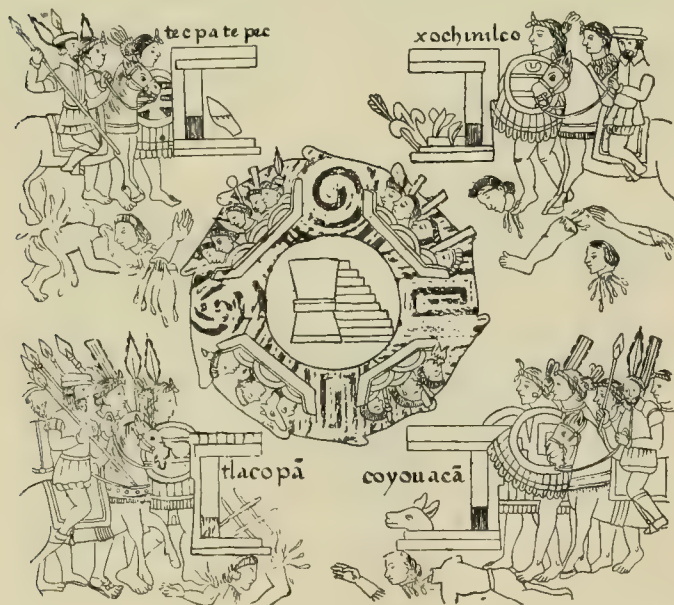 tecpatepec
xochimilco
tlacopã
coyouacã